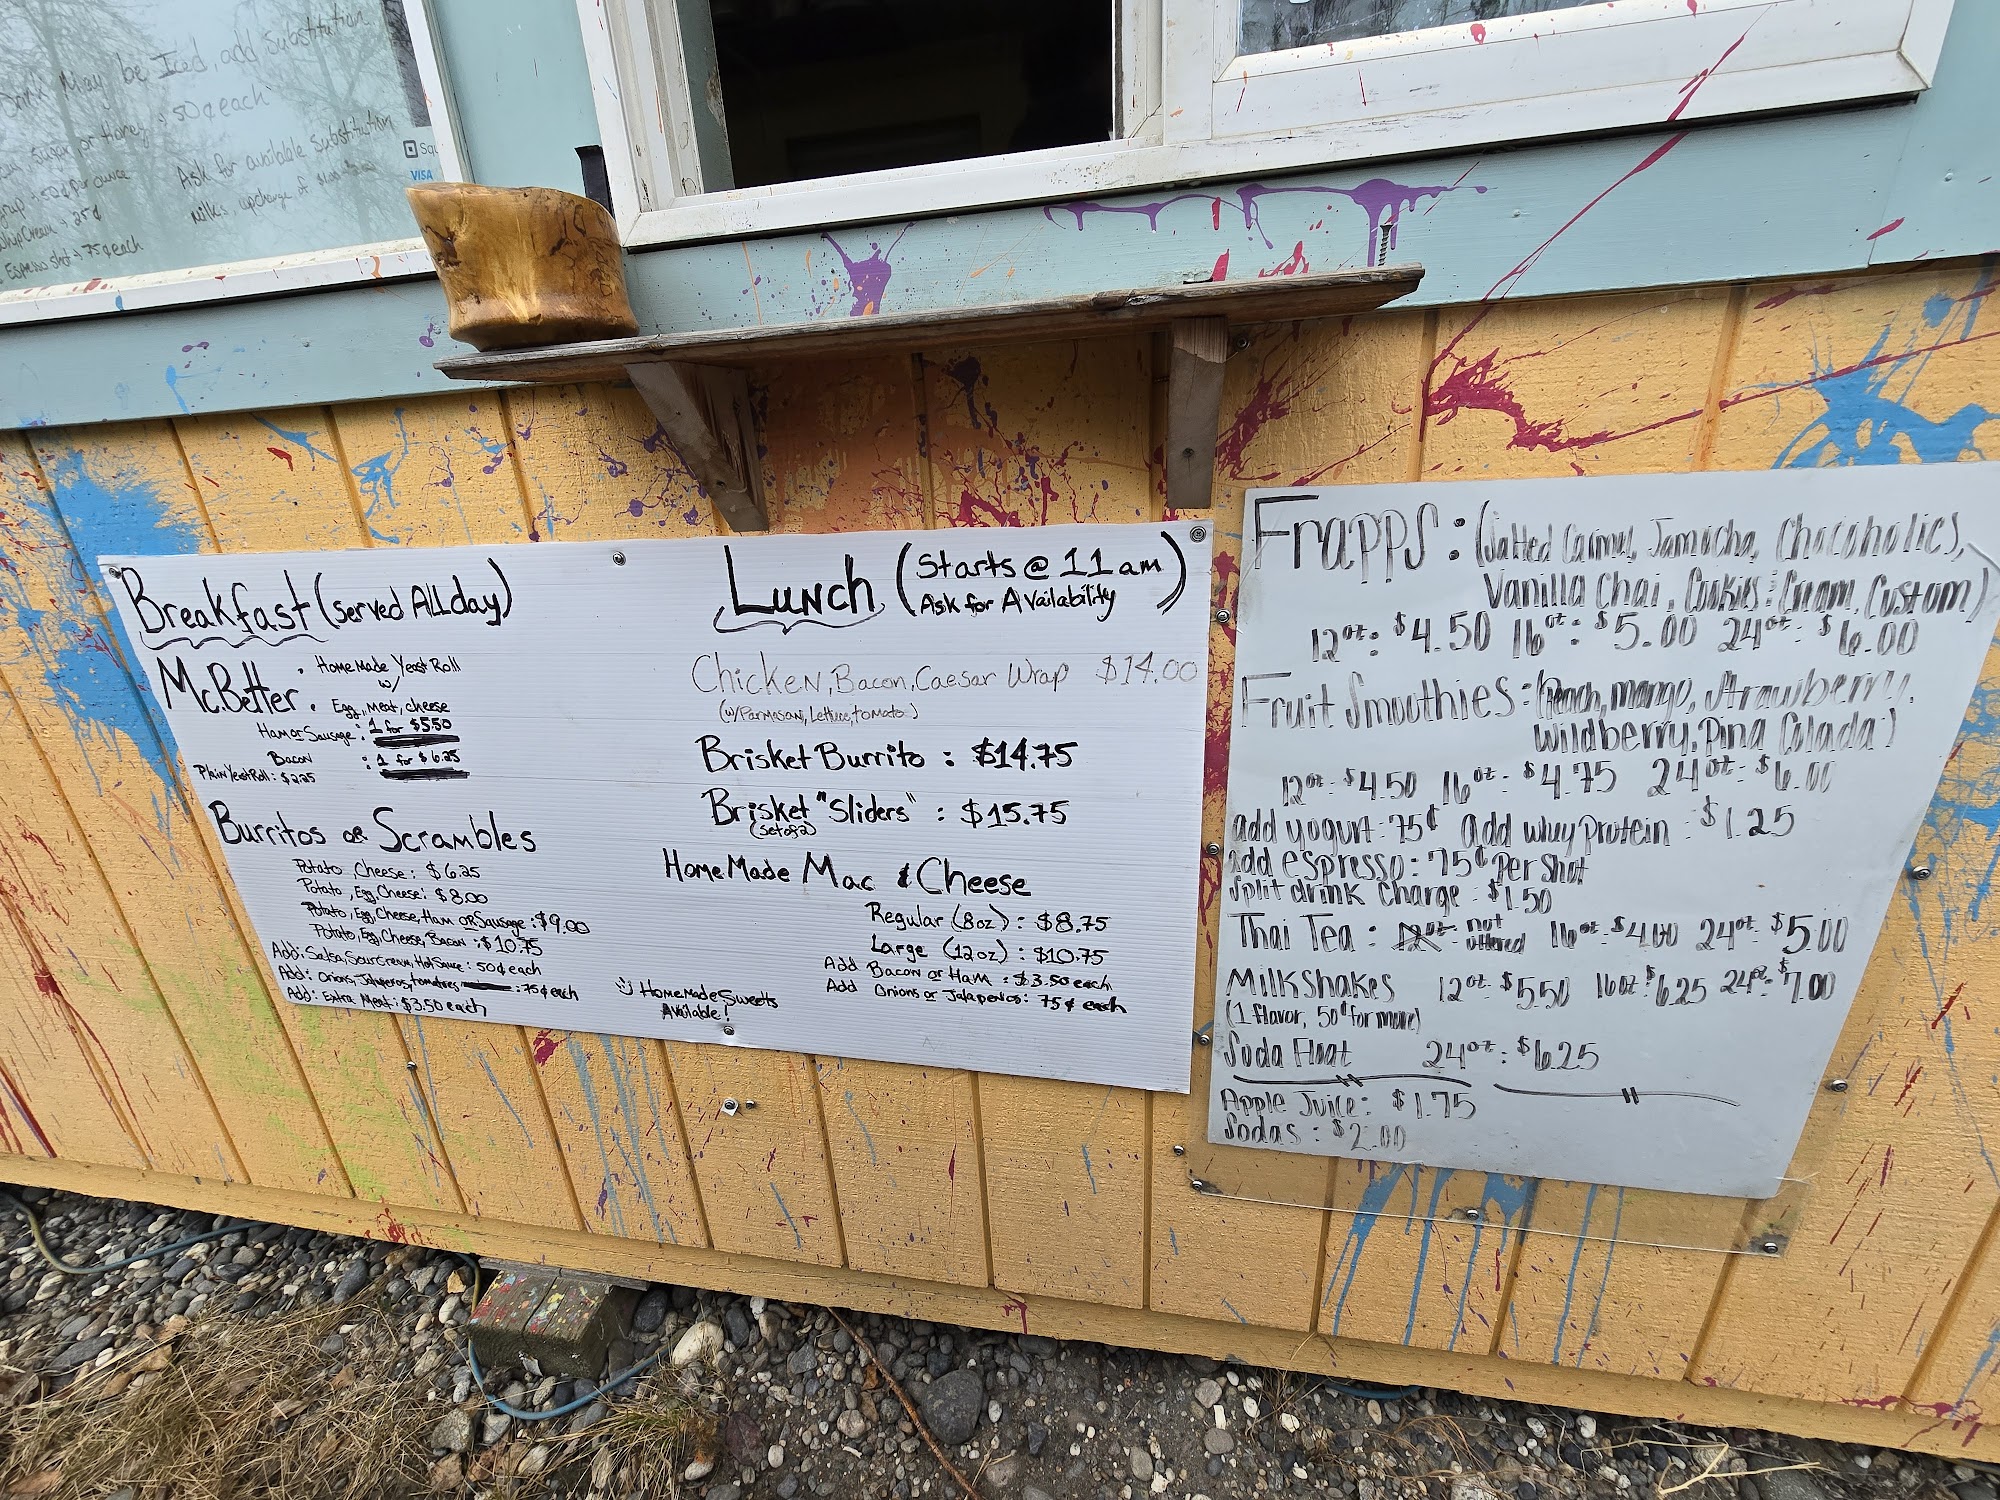 May be Iced, add substitution
sugar or Honey 50¢ each
50¢ per ounce
Ask for available substitution
milks, upcharge of
Whip Cream + 25¢
Espresso shot + 75¢ each
VISA
Breakfast (served All day)
McBetter
• HomeMade Yeast Roll
w/
• Egg, meat, cheese
Ham or Sausage: 1 for $5.50
Bacon : 1 for $6.25
Plain Yeast Roll: $2.25
Burritos or Scrambles
Potato, Cheese: $6.25
Potato, Egg, Cheese: $8.00
Potato, Egg, Cheese, Ham or Sausage: $9.00
Potato, Egg, Cheese, Bacon: $10.75
Add: Salsa, Sour Cream, Hot Sauce: 50¢ each
Add: Onions, Jalapenos, tomatoes : 75¢ each
Add: Extra Meat: $3.50 each
HomeMade Sweets
Available!
Lunch (Starts @ 11am
Ask for Availability)
Chicken, Bacon, Caesar Wrap $14.00
(w/Parmesan, Lettuce, tomato)
Brisket Burrito: $14.75
Brisket "Sliders": $15.75
(set of 2)
HomeMade Mac & Cheese
Regular (8oz): $8.75
Large (12oz): $10.75
Add Bacon or Ham: $3.50 each
Add Onions or Jalapenos: 75¢ each
Frapps: (Salted Carmel, Jamocha, Chocoholics,
Vanilla Chai, Cookies & Cream, Custom)
12oz: $4.50 16oz: $5.00 24oz: $6.00
Fruit Smoothies: (Peach, mango, Strawberry,
Wildberry, Pina Colada)
12oz: $4.50 16oz: $4.75 24oz: $6.00
add yogurt: 75¢ Add whey protein: $1.25
add espresso: 75¢ Per shot
Split drink Charge: $1.50
Thai Tea: 12oz: not offered 16oz: $4.00 24oz: $5.00
Milkshakes 12oz: $5.50 16oz: $6.25 24oz: $7.00
(1 flavor, 50¢ for more)
Soda Float 24oz: $6.25
Apple Juice: $1.75
Sodas: $2.00